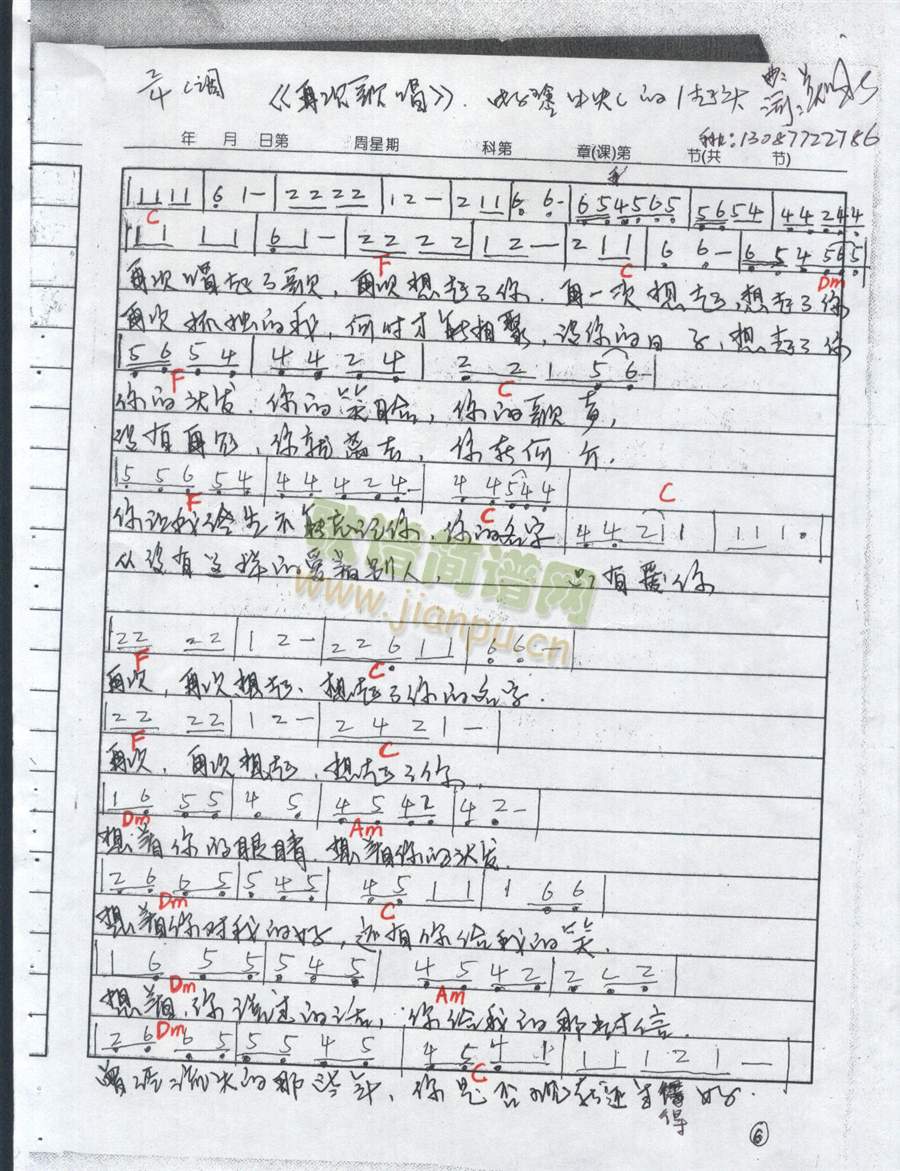 2/4 C调 《再次歌唱》 曲: 词:
手机:13087722786
年 月 日第 周星期 科第 章(课)第 节(共 节)
1111 | 6 1 - | 22 22 | 12 - | 2 11 | 6 6 - | 654565 | 5654 | 44244
C
11 11 | 6 1 - | 22 22 | 1 2 - | 2 11 | 6 6 - | 6 5 4 565
F C Dm
再次唱起了歌,再次想起了你.再一次想起,想起了你
再次孤独的我,何时才能相聚,没你的日子,想起了你
5654 | 4424 | 2 2 1 5 6 -
F C
你的头发.你的笑脸,你的歌声,
没有再见,你就离去,你在何方.
5 5 6 5 4 | 4 4 4 2 4 | 4 4 5 4 4
F C C
你让我今生不能忘记你.你的名字 4 4 2 1 1 | 1 1 1.
从没有这样的爱着别人, 只有爱你
歌谱简谱网
www.jianpu.cn
22 22 | 1 2 - | 2 2 6 1 1 | 6 6 -
F C
再次,再次想起、想起了你的名字.
22 22 | 1 2 - | 2 4 2 1 -
F C
再次,再次想起,想起了你,
1 6 5 5 | 4 5 | 4 5 4 2 | 4 2 -
Dm Am
想着你的眼睛.想着你的头发.
2 6 6 5 | 5 4 5 | 4 5 1 1 | 1 6 6
Dm C
想着你对我的好,还有你给我的笑.
1 6 5 5 | 5 4 5 | 4 5 4 2 | 2 2 2
Dm Am
想着,你说过的话,你给我的那封信.
2 6 6 5 | 5 5 4 5 | 4 5 4 1 | 1 1 1 2 1 -
Dm C
曾经流失的那些年,你是否现在还过得好.
得
⑥